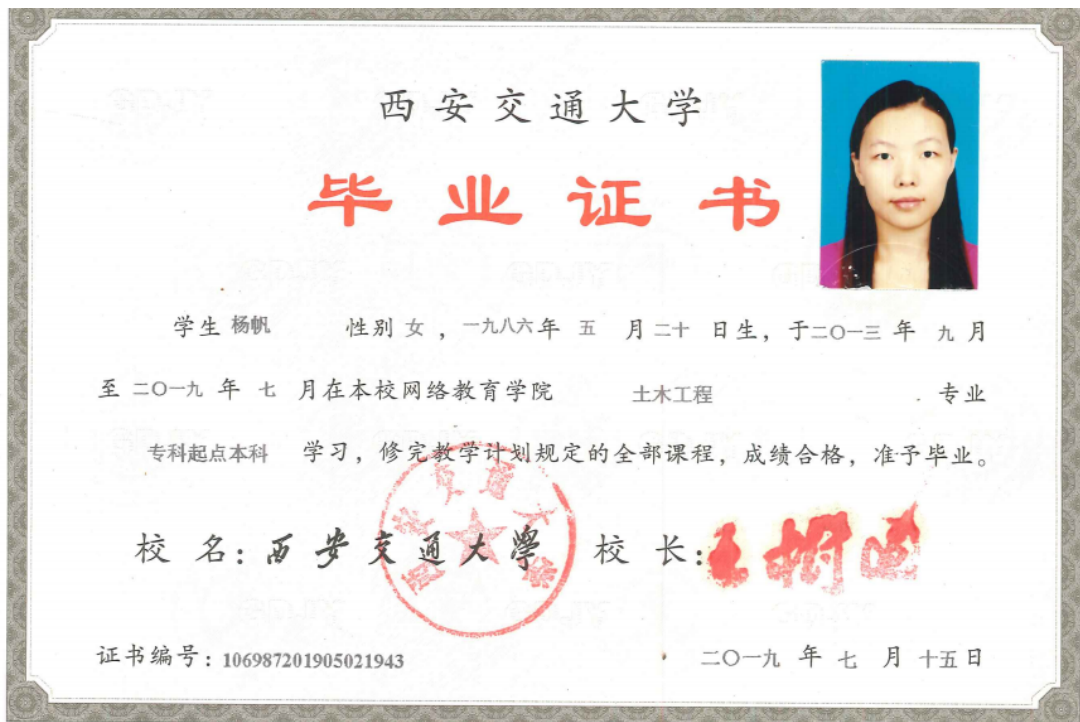 西安交通大学
毕业证书
学生 杨帆 性别 女 ，一九八六年 五 月二十 日生，于二〇一三 年 九 月
至 二〇一九 年 七 月在本校网络教育学院 土木工程 专业
专科起点本科 学习，修完教学计划规定的全部课程，成绩合格，准予毕业。
校 名：西安交通大學 校 长：王树国
西安交通大学
证书编号：106987201905021943 二〇一九 年 七 月 十五日